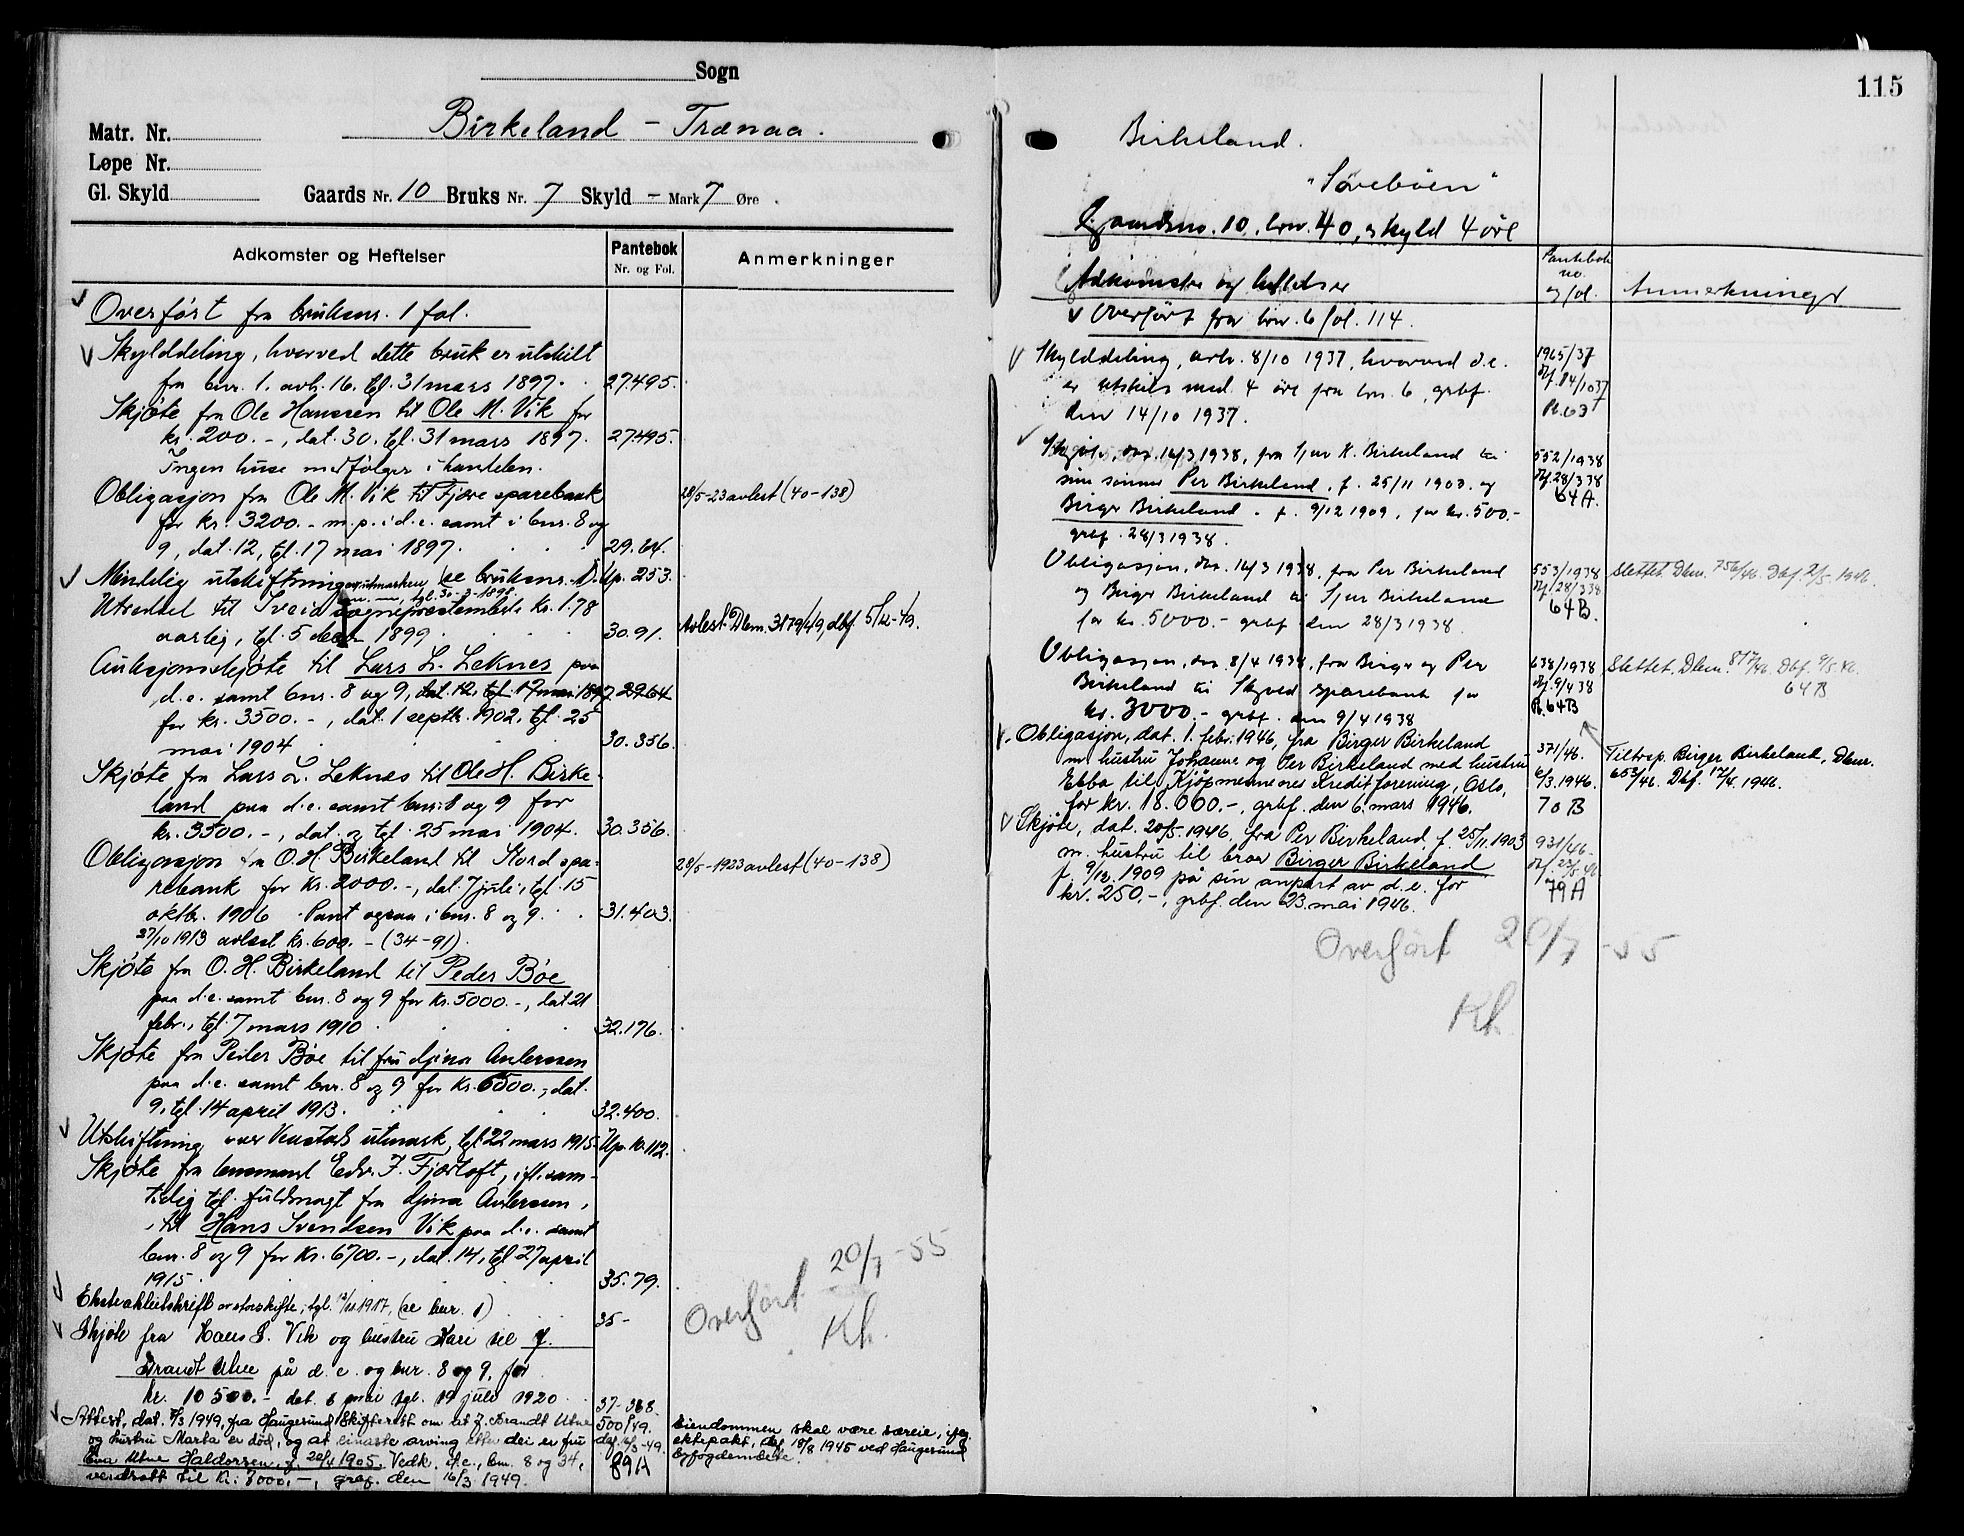 Sogn
Matr. Nr.
Birkeland - Trænaa.
Løpe Nr.
Gl. Skyld Gaards Nr. 10 Bruks Nr. 7 Skyld - Mark 7 Øre.
Adkomster og Heftelser
Pantebok
Nr. og Fol.
Anmerkninger
Overført fra bruksnr. 1 fol.
Skylddeling, hvorved dette bruk er utskilt
fra bnr. 1. avh. 16. tgl. 31 mars 1897. 27.495.
Skjøte fra Ole Hanssen til Ole M. Vik for
kr. 200.-, dat. 30. tgl. 31 mars 1897. 27.495.
Ingen huse medfølger i handelen.
Obligasjon fra Ole M. Vik til Fjære sparebank 28/5-23 avlest (40-138)
for kr. 3200.- m. p. i d. e. samt i bnr. 8 og
9, dat. 12, tgl. 17 mai 1897. 29.64.
Mindelig utskiftning av utmarken (se bruksnr. 1). Up. 253.
tgl. 30-7-1898
Utsædel til Sveio sogneprestembede kr. 1.78
aarlig, tgl. 5 decbr 1899. 30.91. Avlest. Dbnr. 3179/49, dbf. 5/12-49.
Auksjonsskjøte til Lars L. Leknes paa
d. e. samt bnr. 8 og 9, dat. 12, tgl. 17 mai 1897 29.64
for kr. 3500.-, dat. 1 septbr. 1902, tgl. 25
mai 1904. 30.356.
Skjøte fra Lars L. Leknes til Ole H. Birke-
land paa d. e. samt bnr. 8 og 9 for
kr. 3500.-, dat. og tgl. 25 mai 1904. 30.356.
Obligasjon fra O. H. Birkeland til Stord spa-
28/5-1923 avlest (40-138)
rebank for kr. 2000.-, dat. 7 juli, tgl. 15
oktbr. 1906. Pant ogsaa i bnr. 8 og 9. 31.403.
27/10 1913 avlest kr. 600.- (34-91).
Skjøte fra O. H. Birkeland til Peder Bøe
paa d. e. samt bnr. 8 og 9 for kr. 5000.-, dat. 21
febr., tgl. 7 mars 1910. 32.176.
Skjøte fra Peder Bøe til fru Gjina Anderssen
paa d. e. samt bnr. 8 og 9 for kr. 6500.-, dat.
9, tgl. 14 april 1913. 32.400.
Utskiftning over utmark, tgl. 22 mars 1915. Up. 10.112.
Skjøte fra lensmand Edv. J. Fjørtoft, ifl. sam-
tidig tgl. fuldmagt fra Gjina Anderssen,
til Hans Svendsen Vik paa d. e. samt
bnr. 8 og 9 for kr. 6700.-, dat. 14, tgl. 27 april
1915. 35.79.
Ekstraktutskrift av storskifte, tgl. 1917, (se bnr. 1) 35-
Overført 20/7-55
Kh.
Skjøte fra Hans S. Vik og hustru Kari til J.
Brandt Utne på d. e. og bnr. 8 og 9, for
kr. 10500.- dat. 6 mai tgl. 19 juli 1920. 37-368
Attest, dat. 1949, fra Haugesund Skifterett om at J. Brandt Utne 500/49.
og hustru Marta er død, og at eneste arving etter dei er fru dgf. 16/3-49.
Eva Utne Haldorsen, f. 20/4 1905. Vedk. d. e., bnr. 8 og 34, 89A
verdsatt til kr. 7000.-, grbf. den 16/3 1949.
Eiendommen skal være særeie, iflg.
ektepakt, dbf. 18/8 1945 ved Haugesund
Byfogdembete.
115
Birkeland.
"Sørebøen"
Gaardsno. 10, bnr. 40, skyld 4 øre
Adkomster og heftelser
Pantebok
no.
og fol.
Anmerkninger
Overført fra bnr. 6 fol. 114.
Skylddeling, avh. 8/10 1937, hvorved d. e. 1965/37
er utskilt med 4 øre fra bnr. 6, grbf. Dbf. 14/10 37
den 14/10 1937. Pb. 63
Skjøte, dat. 16/3 1938, fra Sjur K. Birkeland til 552/1938
sine sønner Per Birkeland, f. 25/11 1903. og Dbf. 28/3 38
Birger Birkeland. f. 9/12 1909, for kr. 500.- 64A.
grbf. 28/3 1938.
Obligasjon, dat. 16/3 1938, fra Per Birkeland 553/1938 Slettet. Dbnr. 756/46. Dbf. 2/5 1946.
og Birger Birkeland til Sjur Birkeland Dbf. 28/3 38
for kr. 5000.- grbf. den 28/3 1938. 64B.
Obligasjon, dat. 8/4 1938, fra Birger og Per 638/1938 Slettet. Dbnr. 817/46. Dbf. 9/5 46.
Birkeland til Skjold sparebank for Dbf. 9/4 38 64B
kr. 3000.- grbf. den 9/4 1938 Pb. 64B
Obligasjon, dat. 1. febr. 1946, fra Birger Birkeland 371/46.
m/ hustru Johanne og Per Birkeland med hustru Tiltrep. Birger Birkeland, Dbnr.
Ebba til Kjøpmennenes Kreditforening, Oslo, 6/3. 1946. 653/46. Dbf. 17/4. 1946.
for kr. 18.000.-, grbf. den 6. mars 1946. 70 B
Skjøte, dat. 20/5. 1946, fra Per Birkeland, f. 25/11. 1903 931/46.
m. hustru til bror Birger Birkeland Dbf. 23/5. 46
f. 9/12. 1909 på sin anpart av d. e. for 79 A
kr. 250.-, grbf. den 23. mai 1946.
Overført 20/7-55
Kh